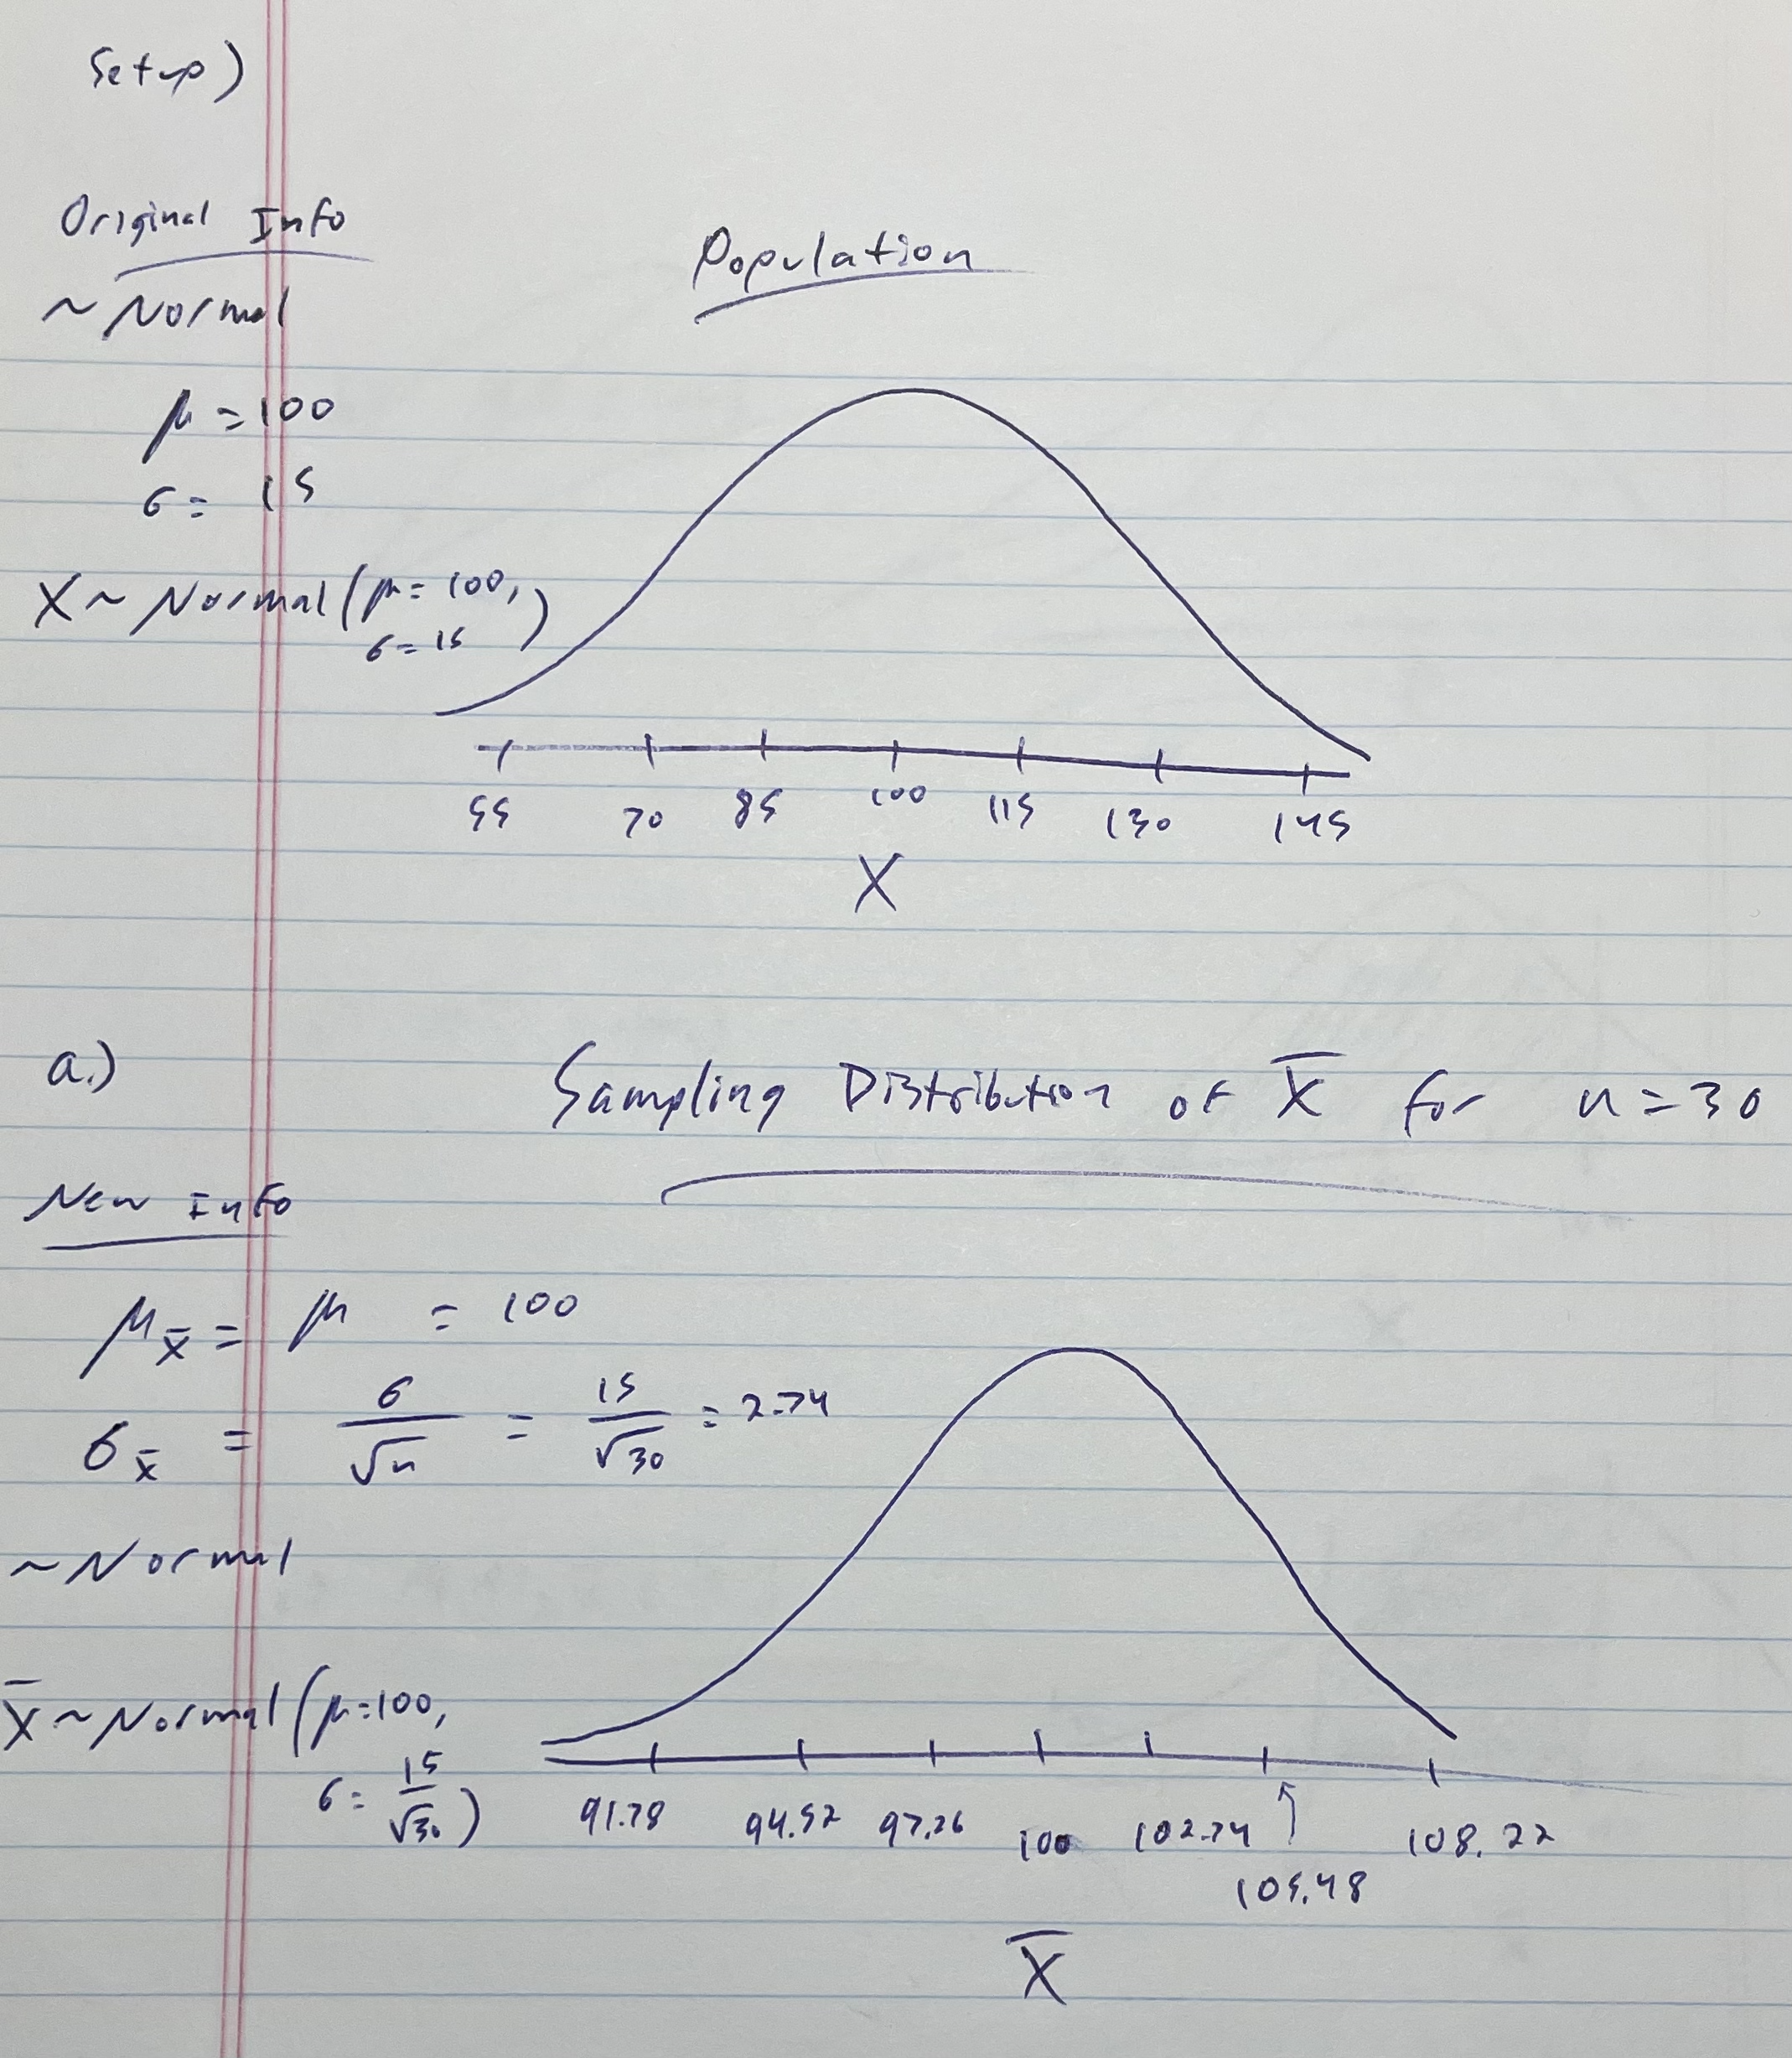 Setup)
Original Info
Population
~ Normal
μ = 100
σ = 15
X ~ Normal (μ = 100,
σ = 15)
55 70 85 100 115 130 145
X
a.)
Sampling Distribution of X̄ for n = 30
New Info
μ_x̄ = μ = 100
σ_x̄ = σ/√n = 15/√30 = 2.74
~ Normal
X̄ ~ Normal (μ = 100,
σ = 15/√30)
91.78 94.52 97.26 100 102.74 108.22
105.48
X̄